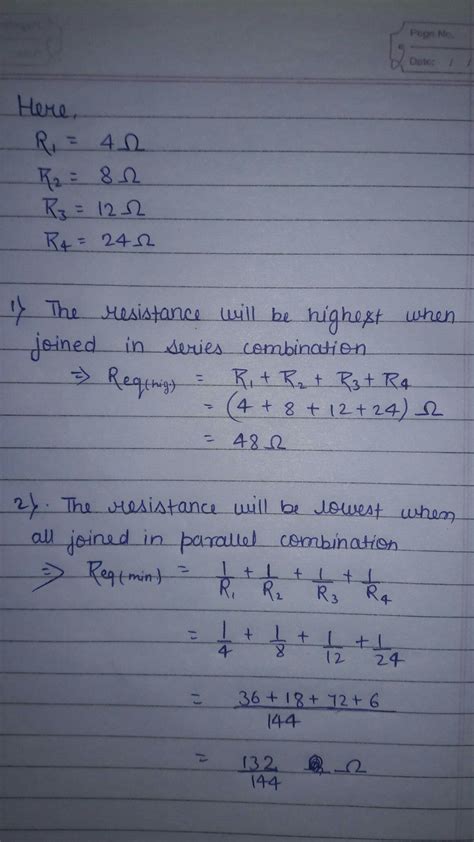 Page No.
Date: / /
Here,
R₁ = 4Ω
R₂ = 8Ω
R₃ = 12Ω
R₄ = 24Ω
1) The resistance will be highest when
joined in series combination
⇒ Req(hig) = R₁ + R₂ + R₃ + R₄
= (4 + 8 + 12 + 24) Ω
= 48Ω
2). The resistance will be lowest when
all joined in parallel combination
⇒ Req(min) = 1/R₁ + 1/R₂ + 1/R₃ + 1/R₄
= 1/4 + 1/8 + 1/12 + 1/24
= 36 + 18 + 72 + 6 / 144
= 132/144 Ω